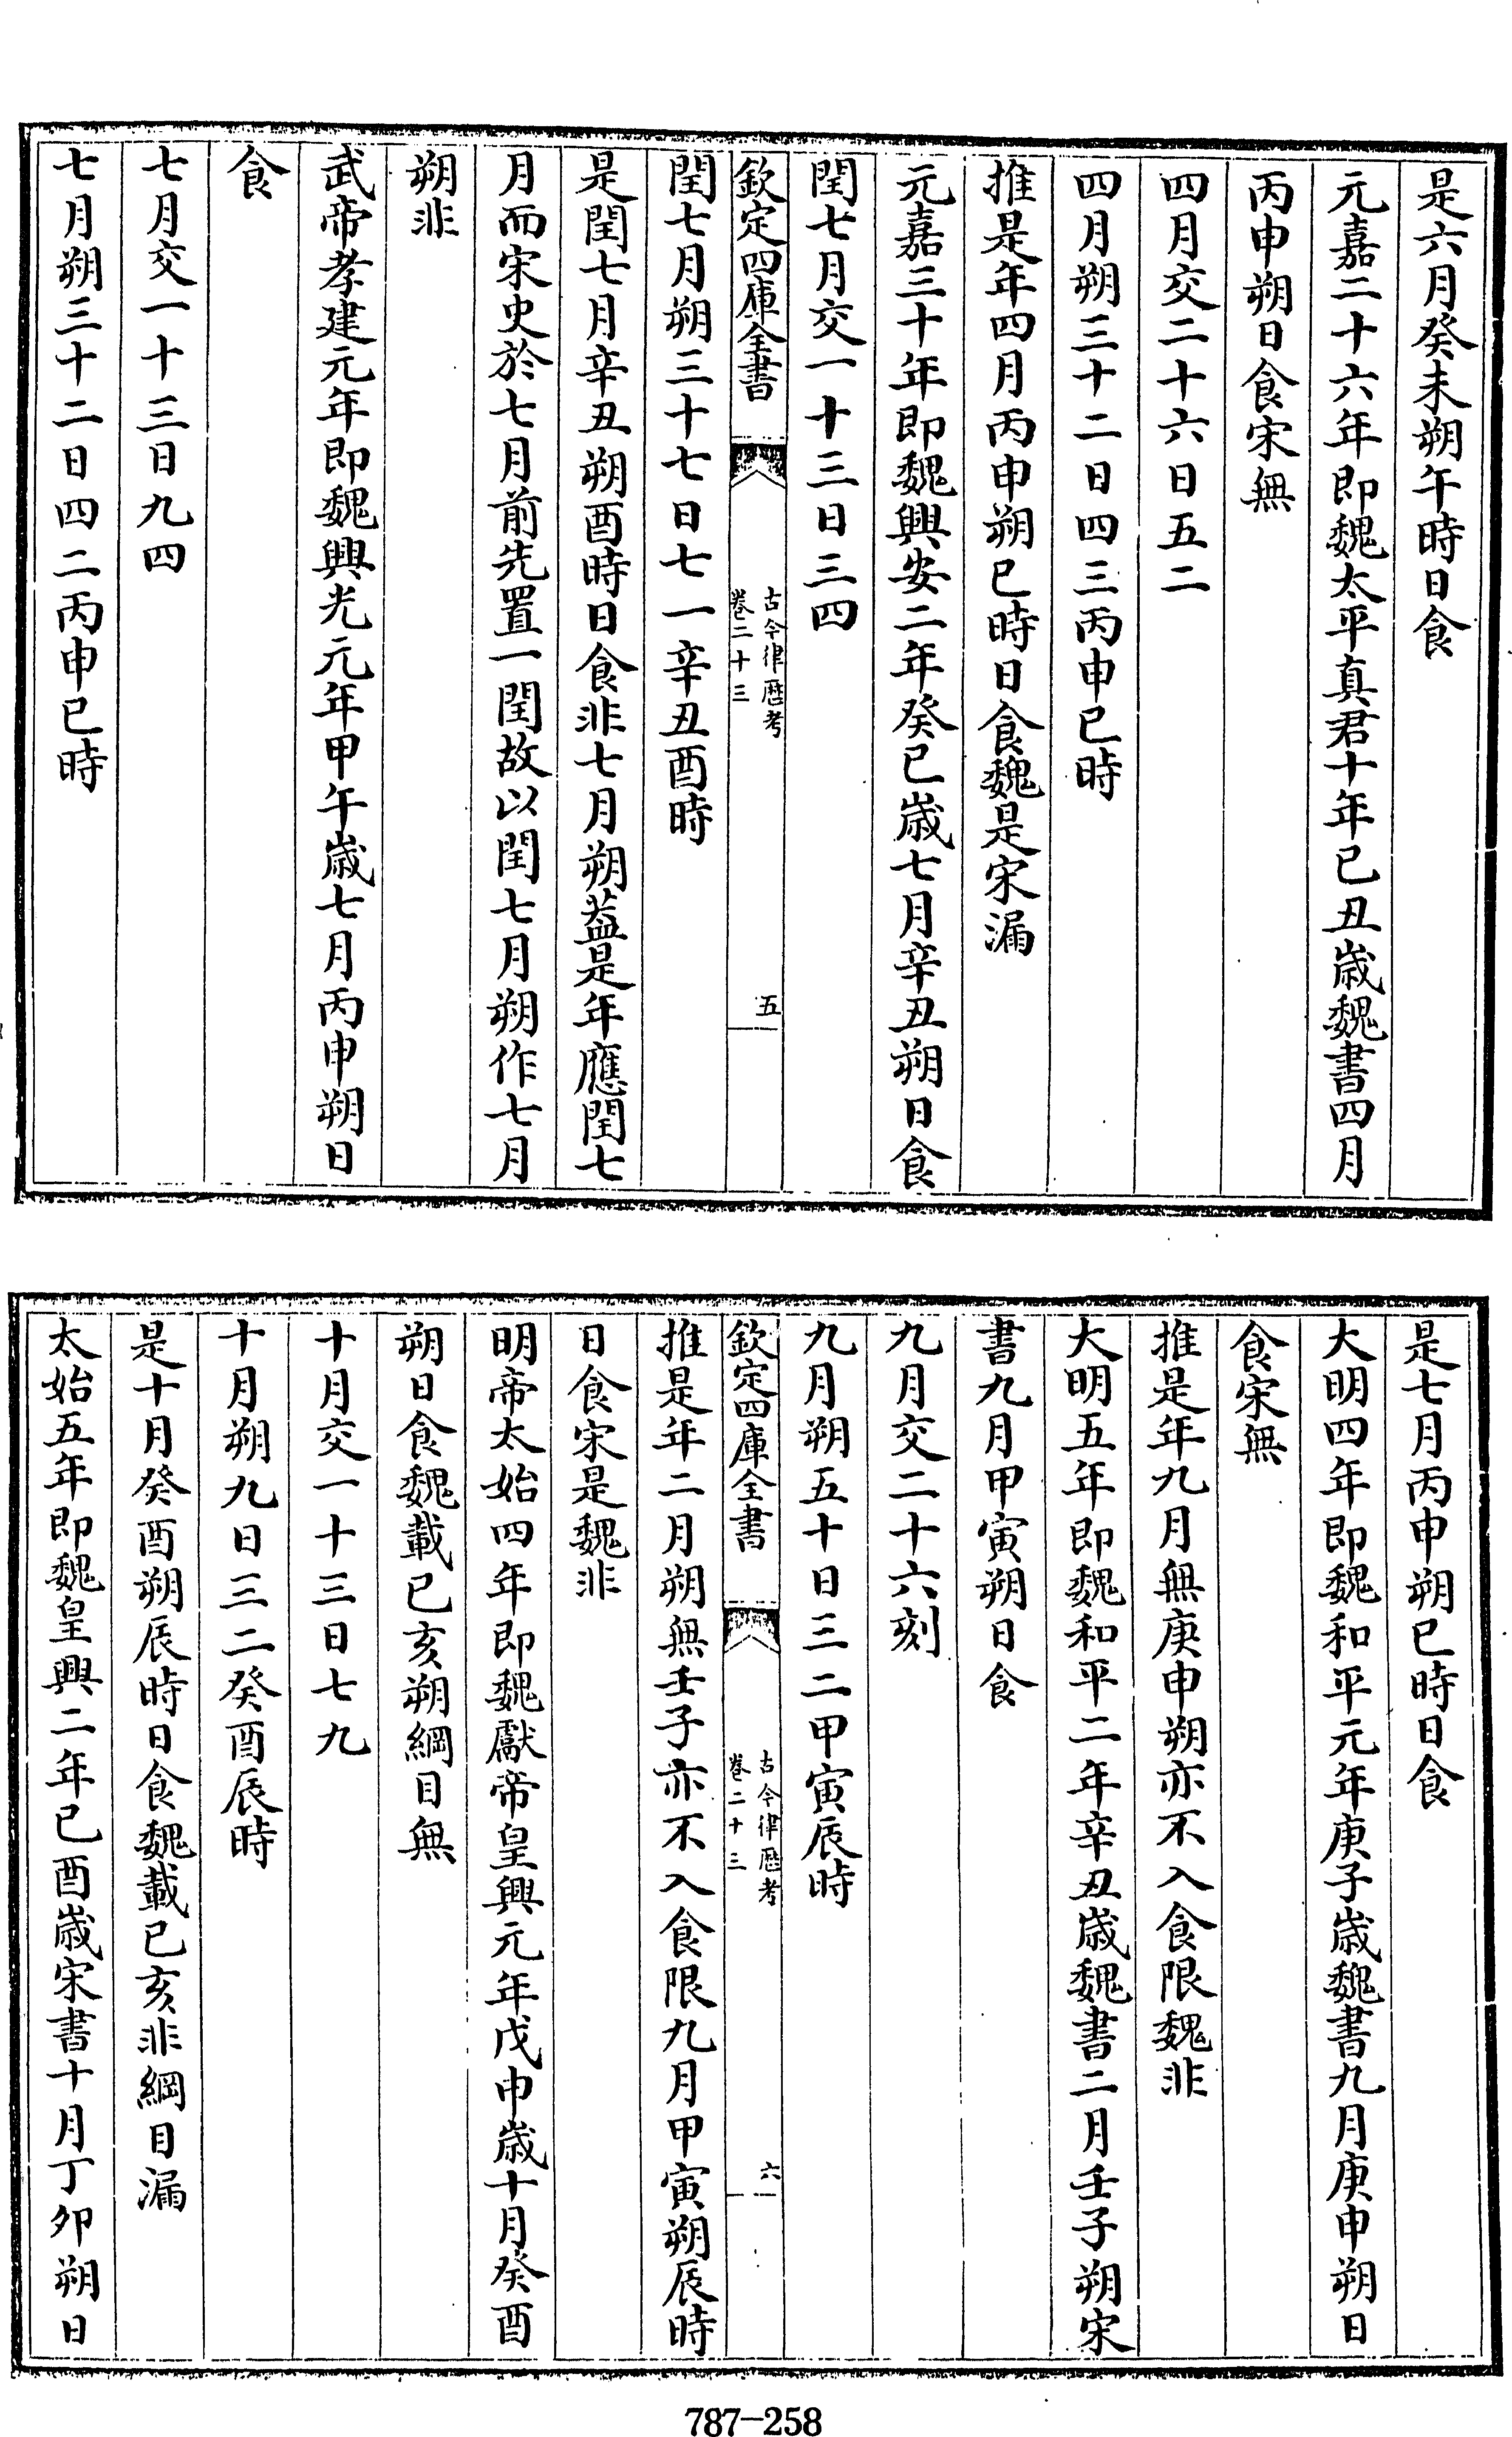 是六月癸未朔午時日食
元嘉二十六年即魏太平真君十年己丑歳魏書四月
丙申朔日食宋無
四月交二十六日五二
四月朔三十二日四三丙申巳時
推是年四月丙申朔巳時日食魏是宋漏
元嘉三十年即魏興安二年癸巳歳七月辛丑朔日食
閏七月交一十三日三四
欽定四庫全書
古今律歴考
卷二十三
五
閏七月朔三十七日七一辛丑酉時
是閏七月辛丑朔酉時日食非七月朔葢是年應閏七
月而宋史於七月前先置一閏故以閏七月朔作七月
朔非
武帝孝建元年即魏興光元年甲午歳七月丙申朔日
食
七月交一十三日九四
七月朔三十二日四二丙申巳時
是七月丙申朔巳時日食
大明四年即魏和平元年庚子歳魏書九月庚申朔日
食宋無
推是年九月無庚申朔亦不入食限魏非
大明五年即魏和平二年辛丑歳魏書二月壬子朔宋
書九月甲寅朔日食
九月交二十六刻
九月朔五十日三二甲寅辰時
欽定四庫全書
古今律歴考
卷二十三
六
推是年二月朔無壬子亦不入食限九月甲寅朔辰時
日食宋是魏非
明帝太始四年即魏獻帝皇興元年戊申歳十月癸酉
朔日食魏載己亥朔綱目無
十月交一十三日七九
十月朔九日三二癸酉辰時
是十月癸酉朔辰時日食魏載己亥非綱目漏
太始五年即魏皇興二年己酉歳宋書十月丁卯朔日
787-258